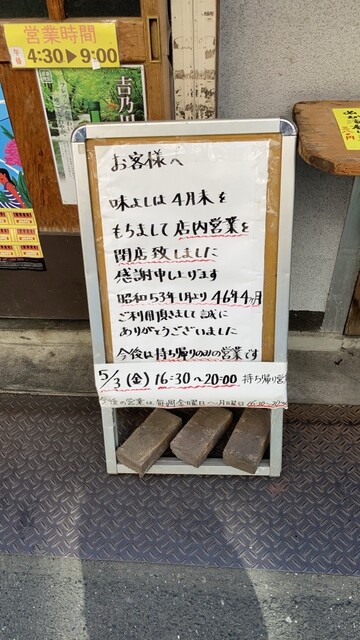 営業時間
午後 4:30▶9:00
吉乃川
お客様へ
味よしは 4月末を
もちまして 店内営業を
閉店致しました
感謝申し上げます
昭和53年1月より 46年4ヶ月
ご利用頂きまして 誠に
ありがとうございました
今後は持ち帰りのみの営業です
5/3 (金) 16:30〜20:00 持ち帰り営
今後の営業は 毎週金曜日〜月曜日